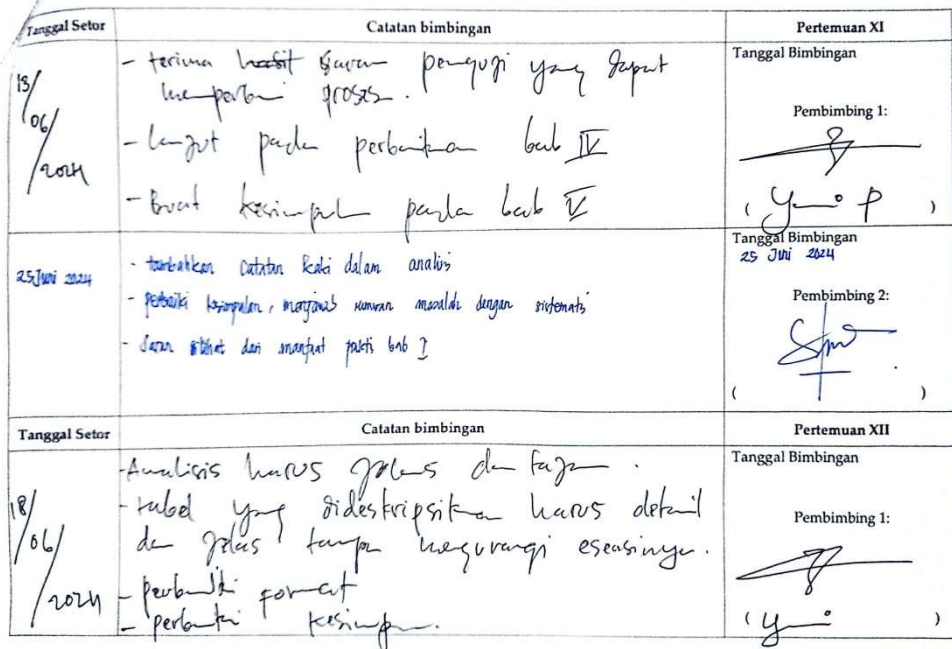 Tanggal Setor
Catatan bimbingan
Pertemuan XI
15/06/2024
- terima saran penguji yang dapat
memperbaiki proses.
- Lanjut pada perbaikan bab IV
- Buat kesimpulan pada bab V
Tanggal Bimbingan
Pembimbing 1:
( P )
25 Juni 2024
- tambahkan catatan kaki dalam analisis
- perbaiki kesimpulan, menjawab rumusan masalah dengan sistematis
- Saran dilihat dari manfaat praktis bab I
Tanggal Bimbingan
25 Juni 2024
Pembimbing 2:
( )
Tanggal Setor
Catatan bimbingan
Pertemuan XII
18/06/2024
- Analisis harus jelas dan tajam.
- tabel yang dideskripsikan harus detail
dan jelas tanpa mengurangi esensinya.
- perbaiki format
- perbaiki kesimpulan.
Tanggal Bimbingan
Pembimbing 1:
( )